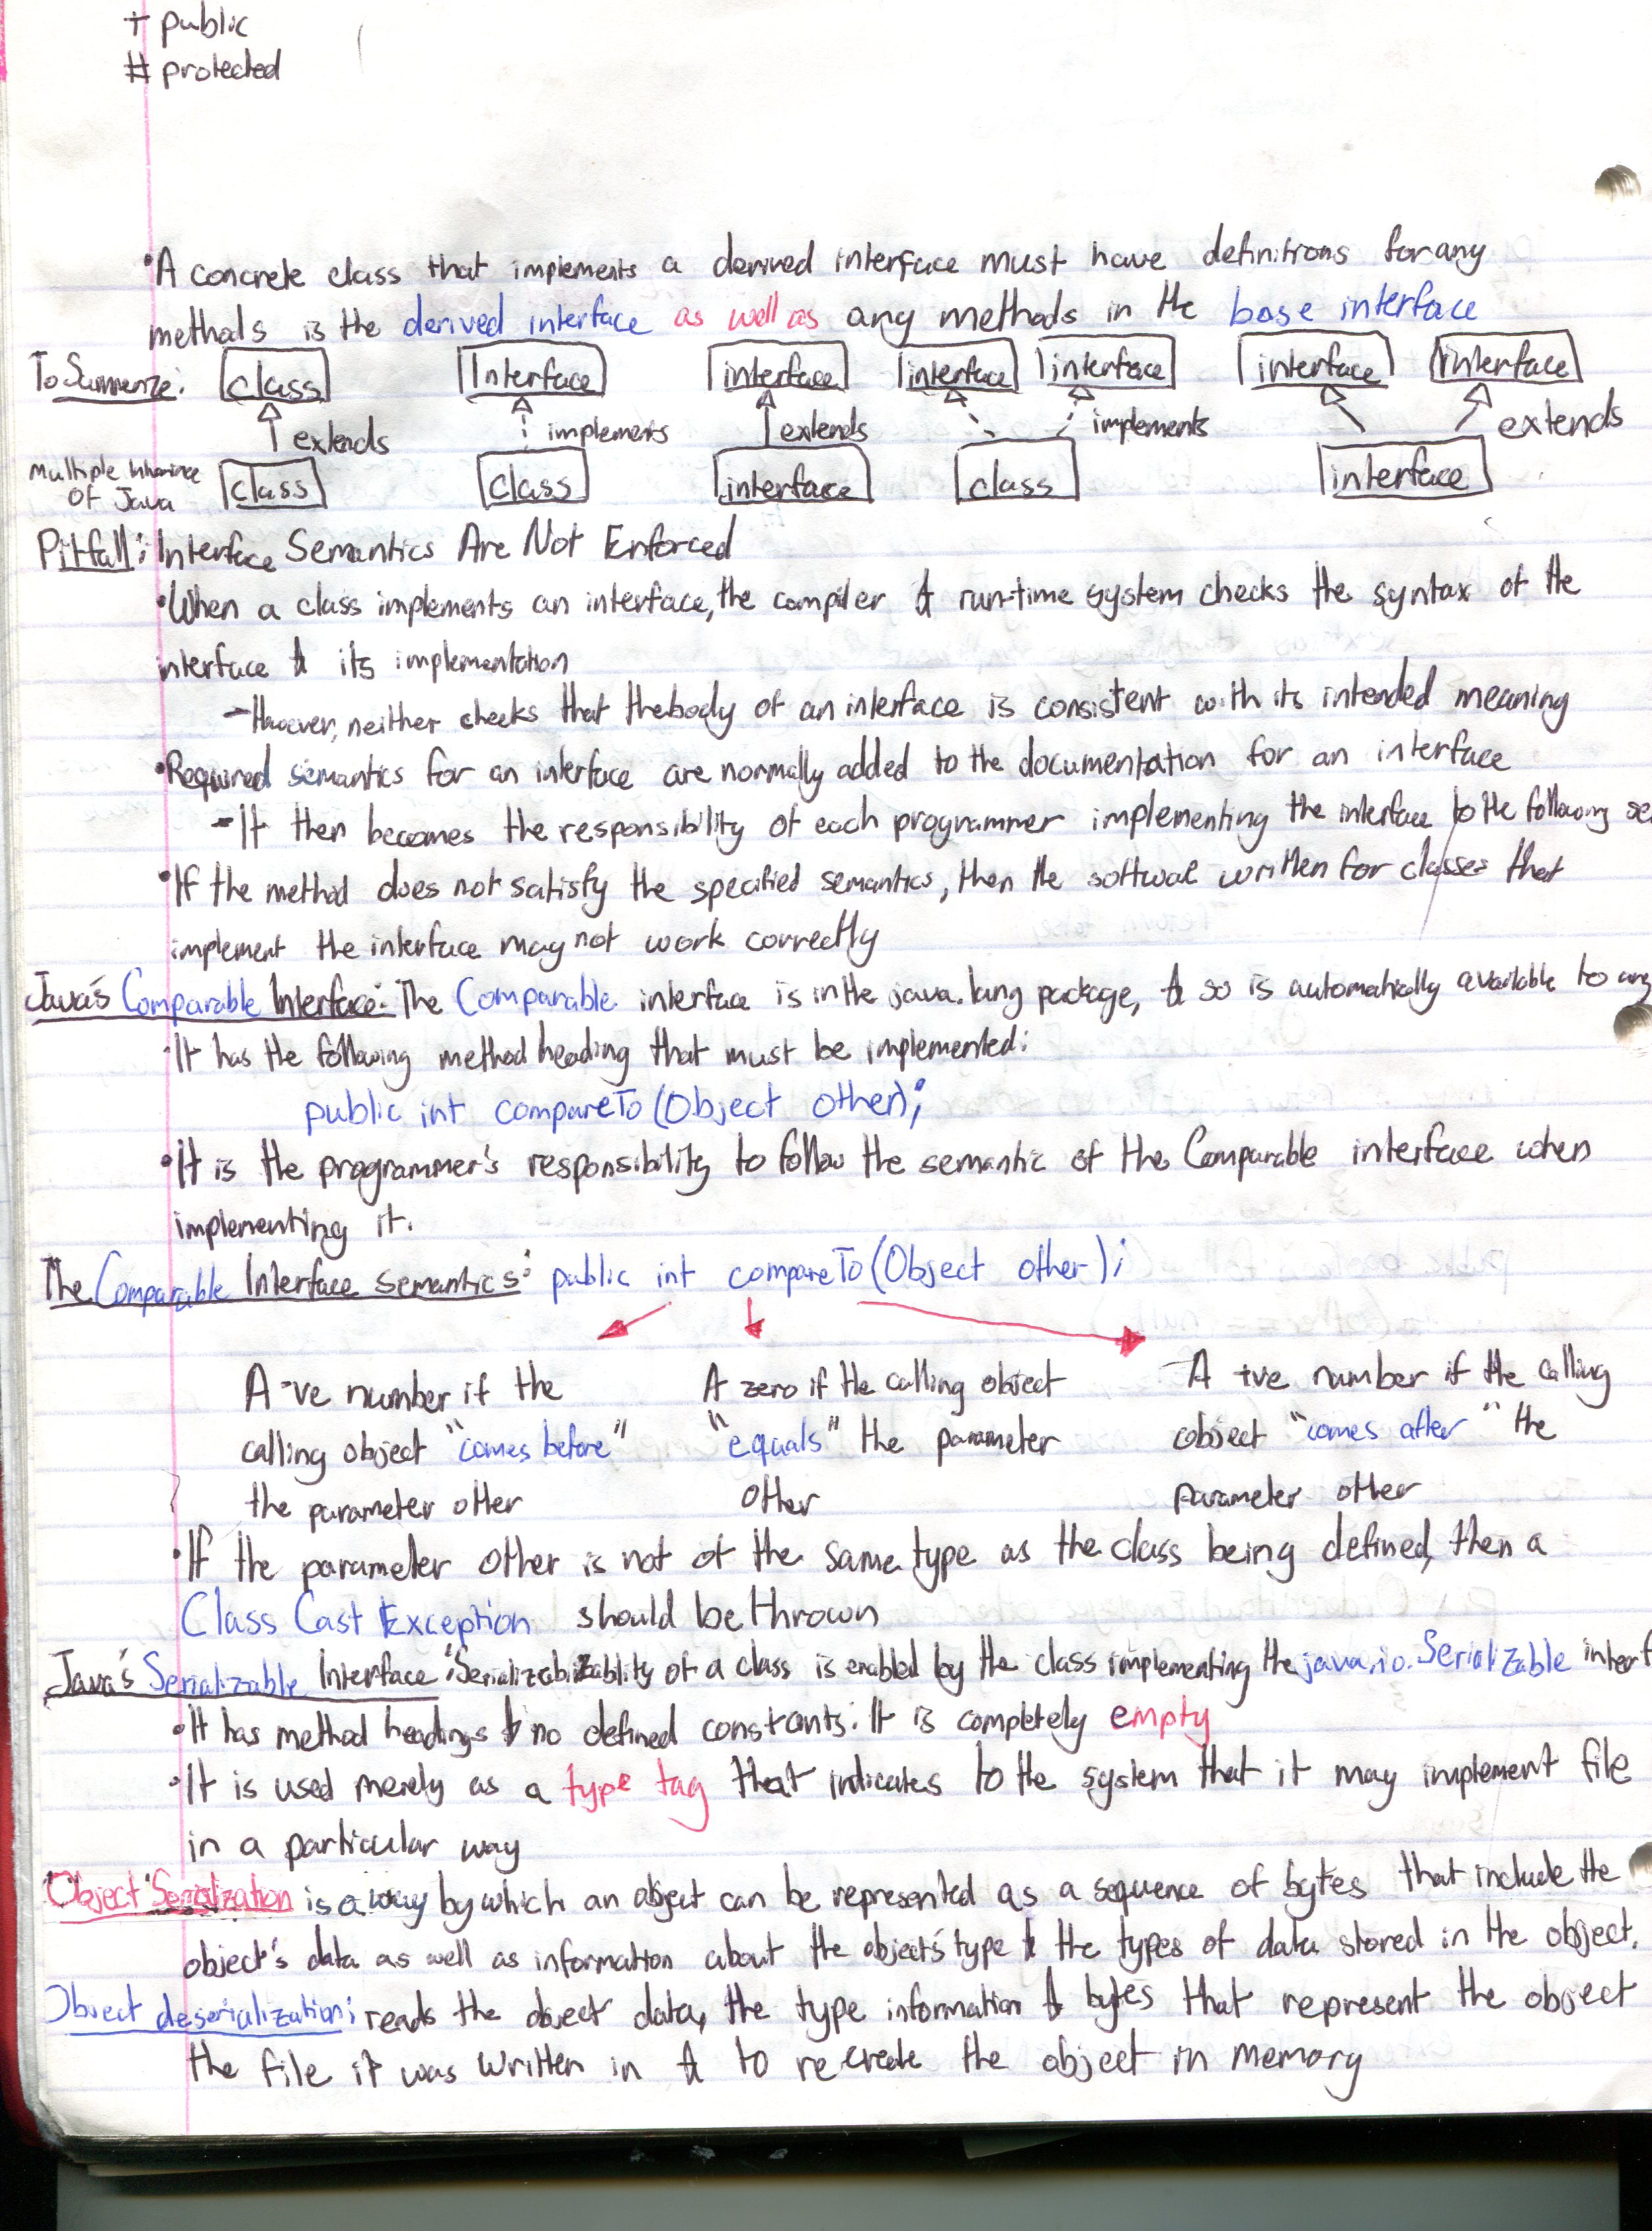 + public
# protected
•A concrete class that implements a derived interface must have definitions for any
methods is the derived interface as well as any methods in the base interface
To Summerze: class Interface interface interface interface interface interface
extends implements extends implements extends
Multiple Inherince class class interface class interface
Of Java
Pitfall: Interface Semantics Are Not Enforced
•When a class implements an interface, the compiler & run-time system checks the syntax of the
interface & its implementation
-However, neither checks that the body of an interface is consistent with its intended meaning
•Required semantics for an interface are normally added to the documentation for an interface
-It then becomes the responsibility of each programmer implementing the interface to the following se
•If the method does not satisfy the specified semantics, then the software written for classes that
implement the interface may not work correctly
Java's Comparable Interface: The Comparable interface is in the java.lang package, & so is automatically available to any
•It has the following method heading that must be implemented:
public int compareTo(Object other);
•It is the programmer's responsibility to follow the semantic of the Comparable interface when
implementing it.
The Comparable Interface semantics: public int compareTo(Object other);
A -ve number if the A zero if the calling object A +ve number if the calling
calling object "comes before" "equals" the parameter object "comes after" the
the parameter other other parameter other
•If the parameter other is not of the same type as the class being defined, then a
Class Cast Exception should be thrown
Java's Serializable Interface: of a class is enabled by the class implementing the java.io.Serializable interf
•It has method headings & no defined constants. It is completely empty
•It is used merely as a type tag that indicates to the system that it may implement file
in a particular way
Object Serialization is a way by which an object can be represented as a sequence of bytes that include the
object's data as well as information about the object's type & the types of data stored in the object.
Object deserialization: reads the object data, the type information & bytes that represent the object
the file it was written in & to recreate the object in memory